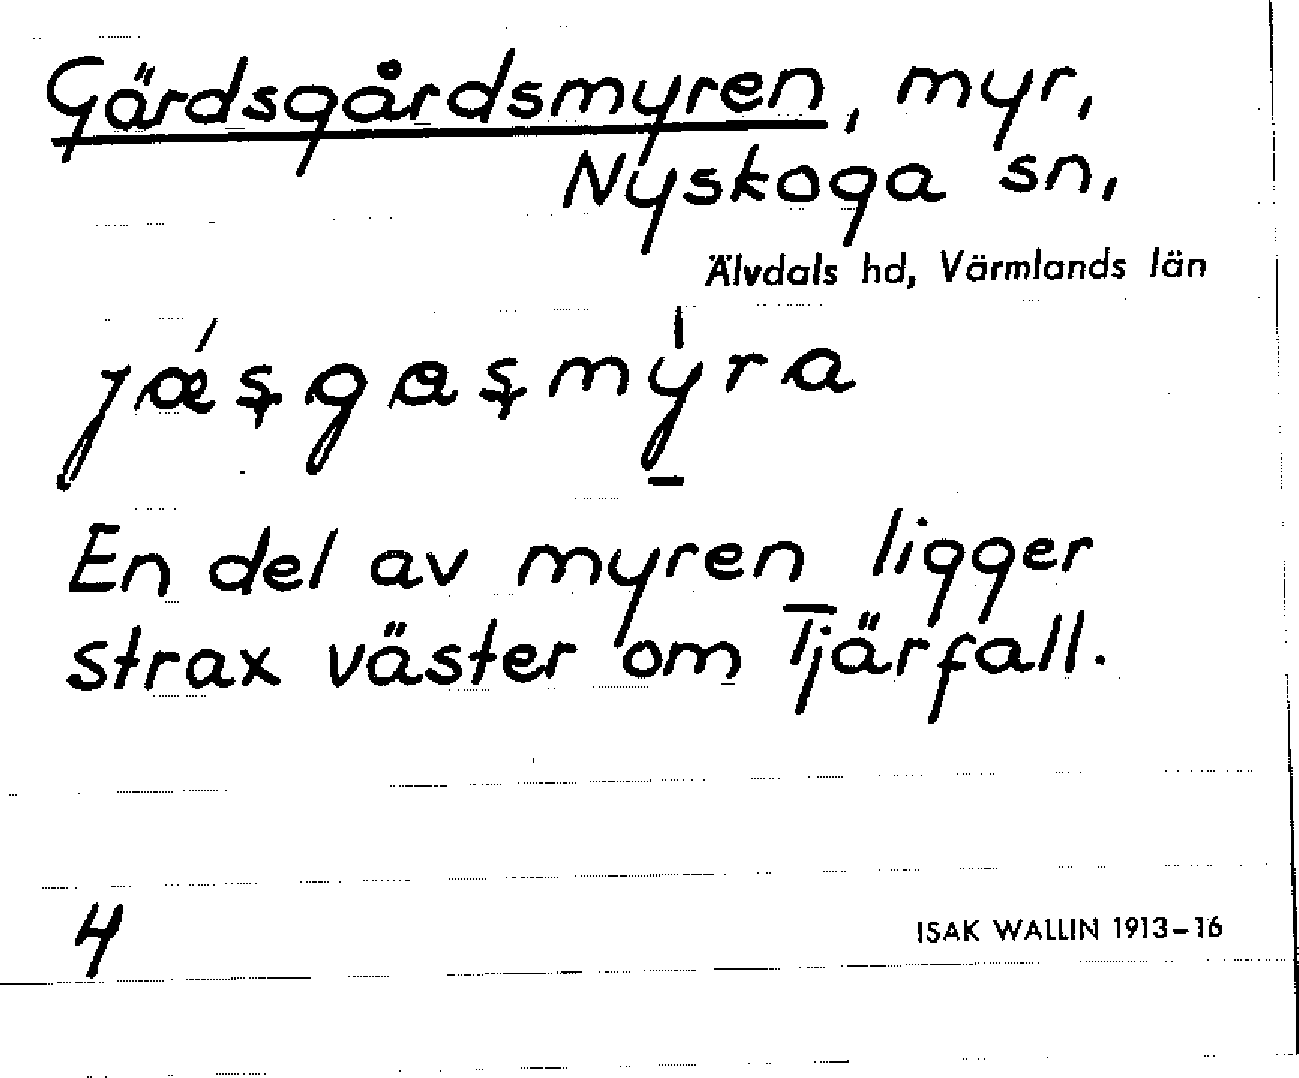 Gärdsgårdsmyren, myr,
Nyskoga sn,
Älvdals hd, Värmlands län
En del av myren ligger
strax väster om Tjärfall.
4
ISAK WALLIN 1913–16